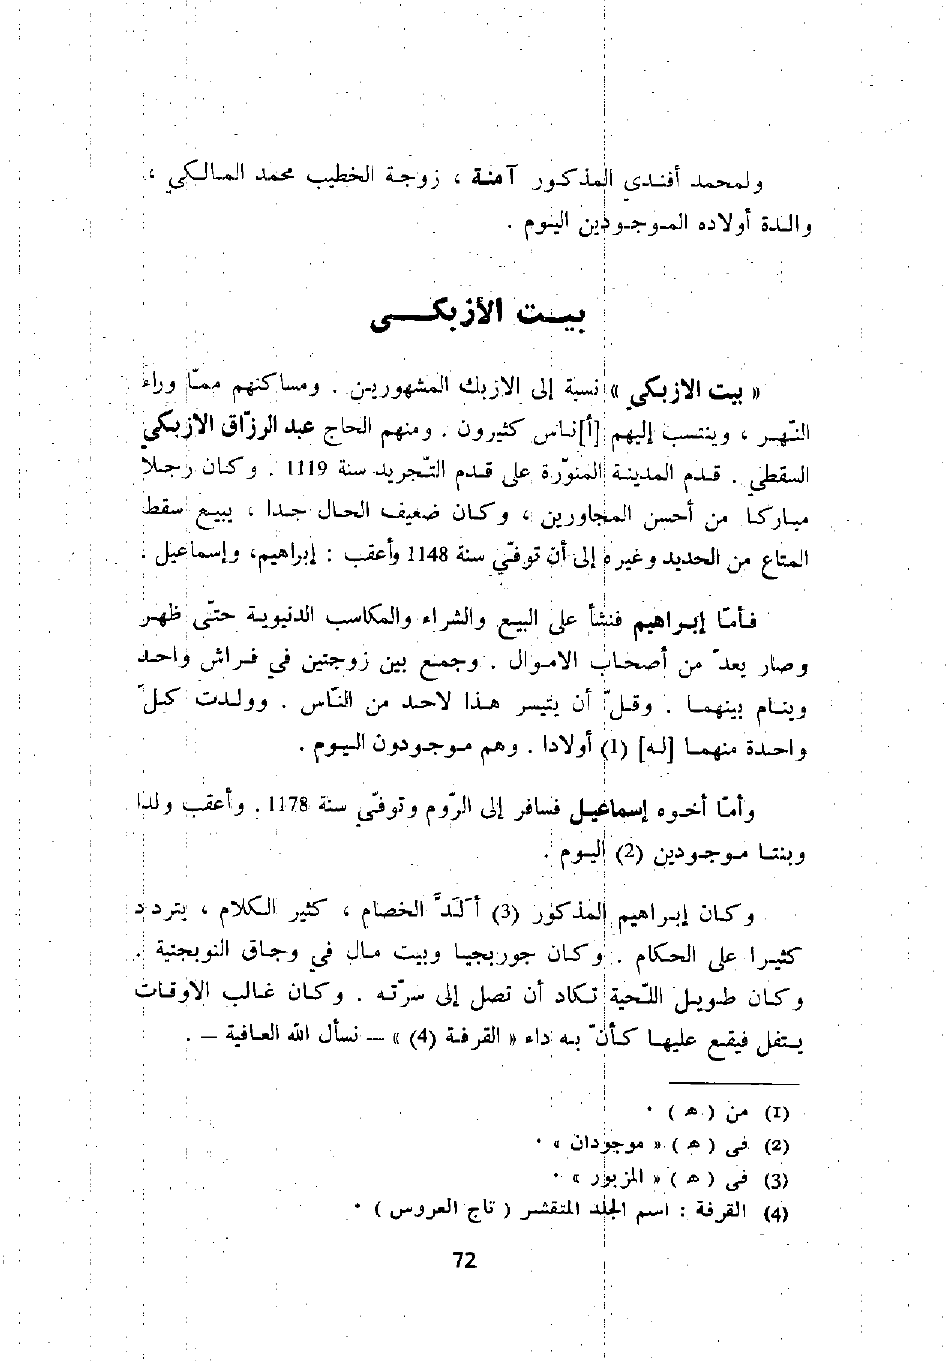 ولمحمد أفندي المذكور آمنة ، زوجة الخطيب محمد المالكي ،
والدة أولاده الموجودين اليوم .
بيت الأزبكي
« بيت الازبكي » نسبة إلى الازبك المشهورين . ومساكنهم ممّا وراء
النّهر ، وينتسب إليهم [أ]ناس كثيرون . ومنهم الحاج عبد الرزّاق الازبكي
السقطي . قدم المدينة المنوّرة على قدم التّجريد سنة 1119 . وكان رجلا
مباركا من أحسن المجاورين ، وكان ضعيف الحال جدا ، يبيع سقط
المتاع من الحديد وغيره إلى أن توفّي سنة 1148 وأعقب : إبراهيم، وإسماعيل .
فأمّا إبراهيم فنشأ على البيع والشراء والمكاسب الدنيوية حتّى ظهر
وصار يعدّ من أصحاب الاموال . وجمع بين زوجتين في فراش واحد
وينام بينهما . وقلّ أن يتيسر هذا لاحد من النّاس . وولدت كلّ
واحدة منهما [له] (1) أولادا . وهم موجودون اليوم .
وأمّا أخوه إسماعيل فسافر إلى الرّوم وتوفّي سنة 1178 . وأعقب ولدا
وبنتا موجودين (2) اليوم .
وكان إبراهيم المذكور (3) أَلَدَّ الخصام ، كثير الكلام ، يتردد
كثيرا على الحكام . وكان جوربجيا وبيت مال في وجاق النوبجتية .
وكان طويل اللّحية تكاد أن تصل إلى سرّته . وكان غالب الاوقات
يتفل فيقع عليها كأنّ به داء « القرفة (4) » — نسأل الله العافية — .
(1) من ( ه ) .
(2) فى ( ه ) « موجودان » .
(3) فى ( ه ) « المزبور » .
(4) القرفة : اسم الجلد المتقشر ( تاج العروس ) .
72